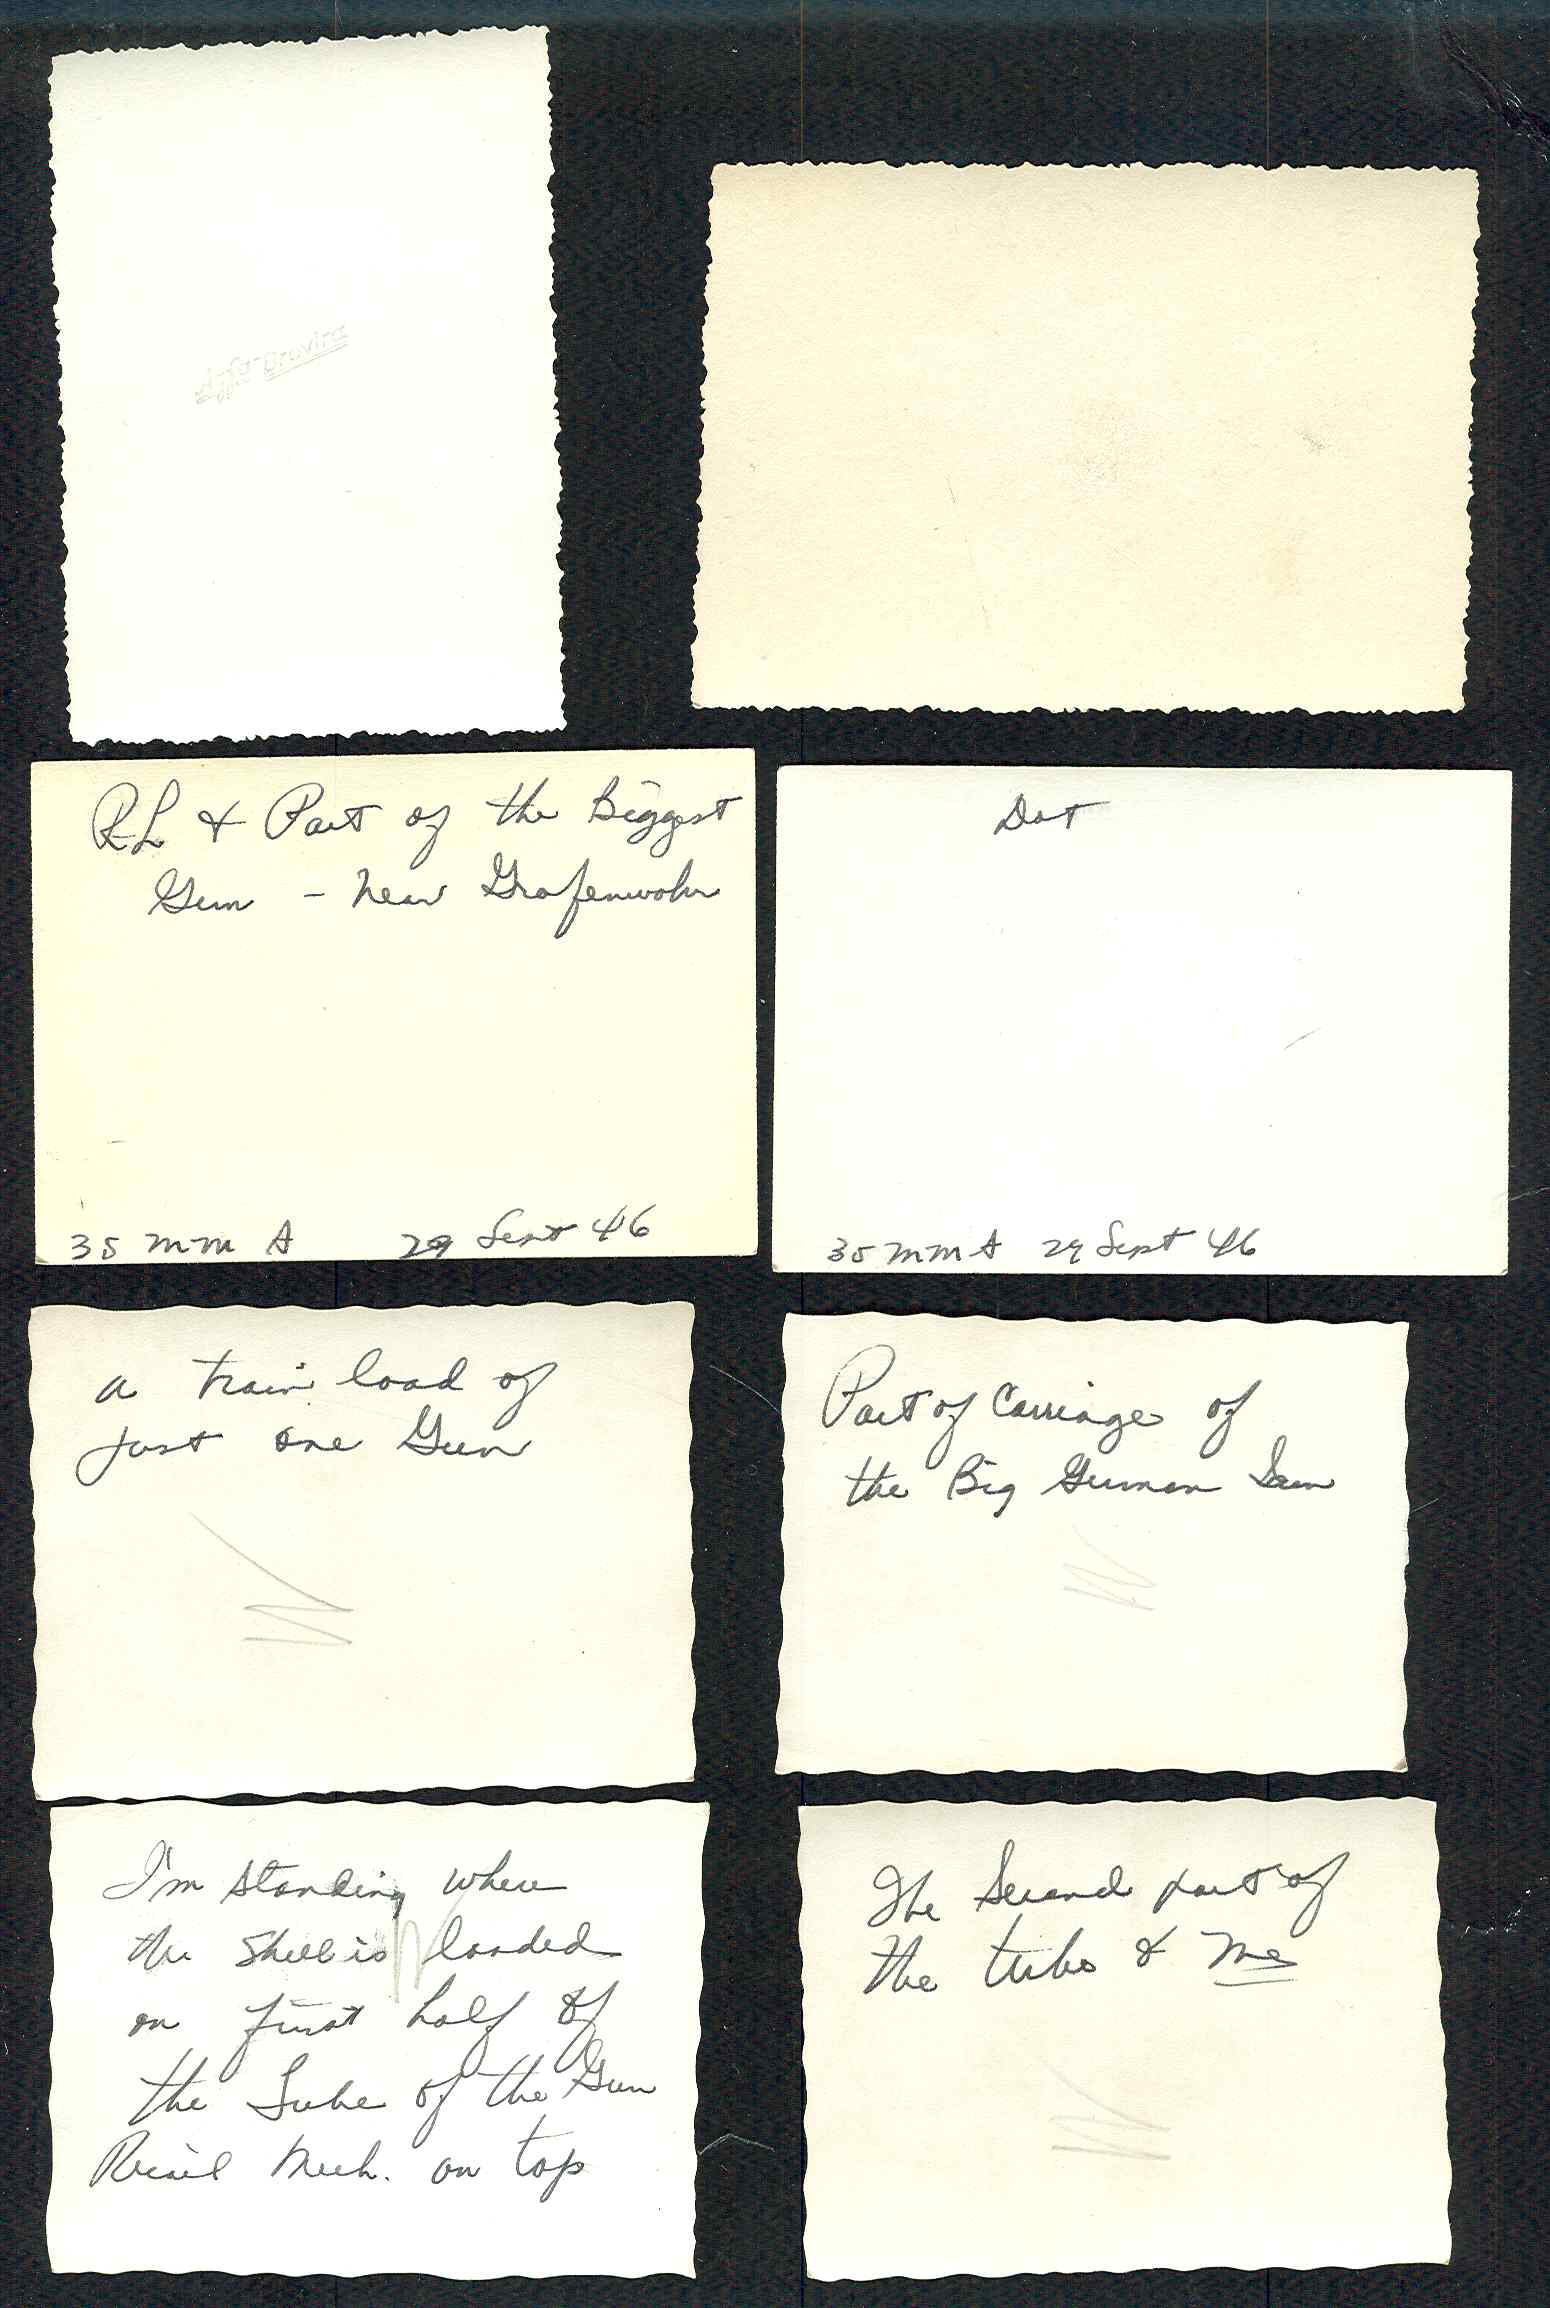 Agfa-Brovira
RL & Part of the Biggest
Gun - near Grafenwohr
35 mm A 29 Sept 46
Dot
35 mm A 29 Sept 46
a train load of
just one Gun
Part of Carriage of
the Big German Gun
I'm standing where
the Shell is loaded
on first half of
the Tube of the Gun
Recoil Mech. on top
The Second part of
the tube & me